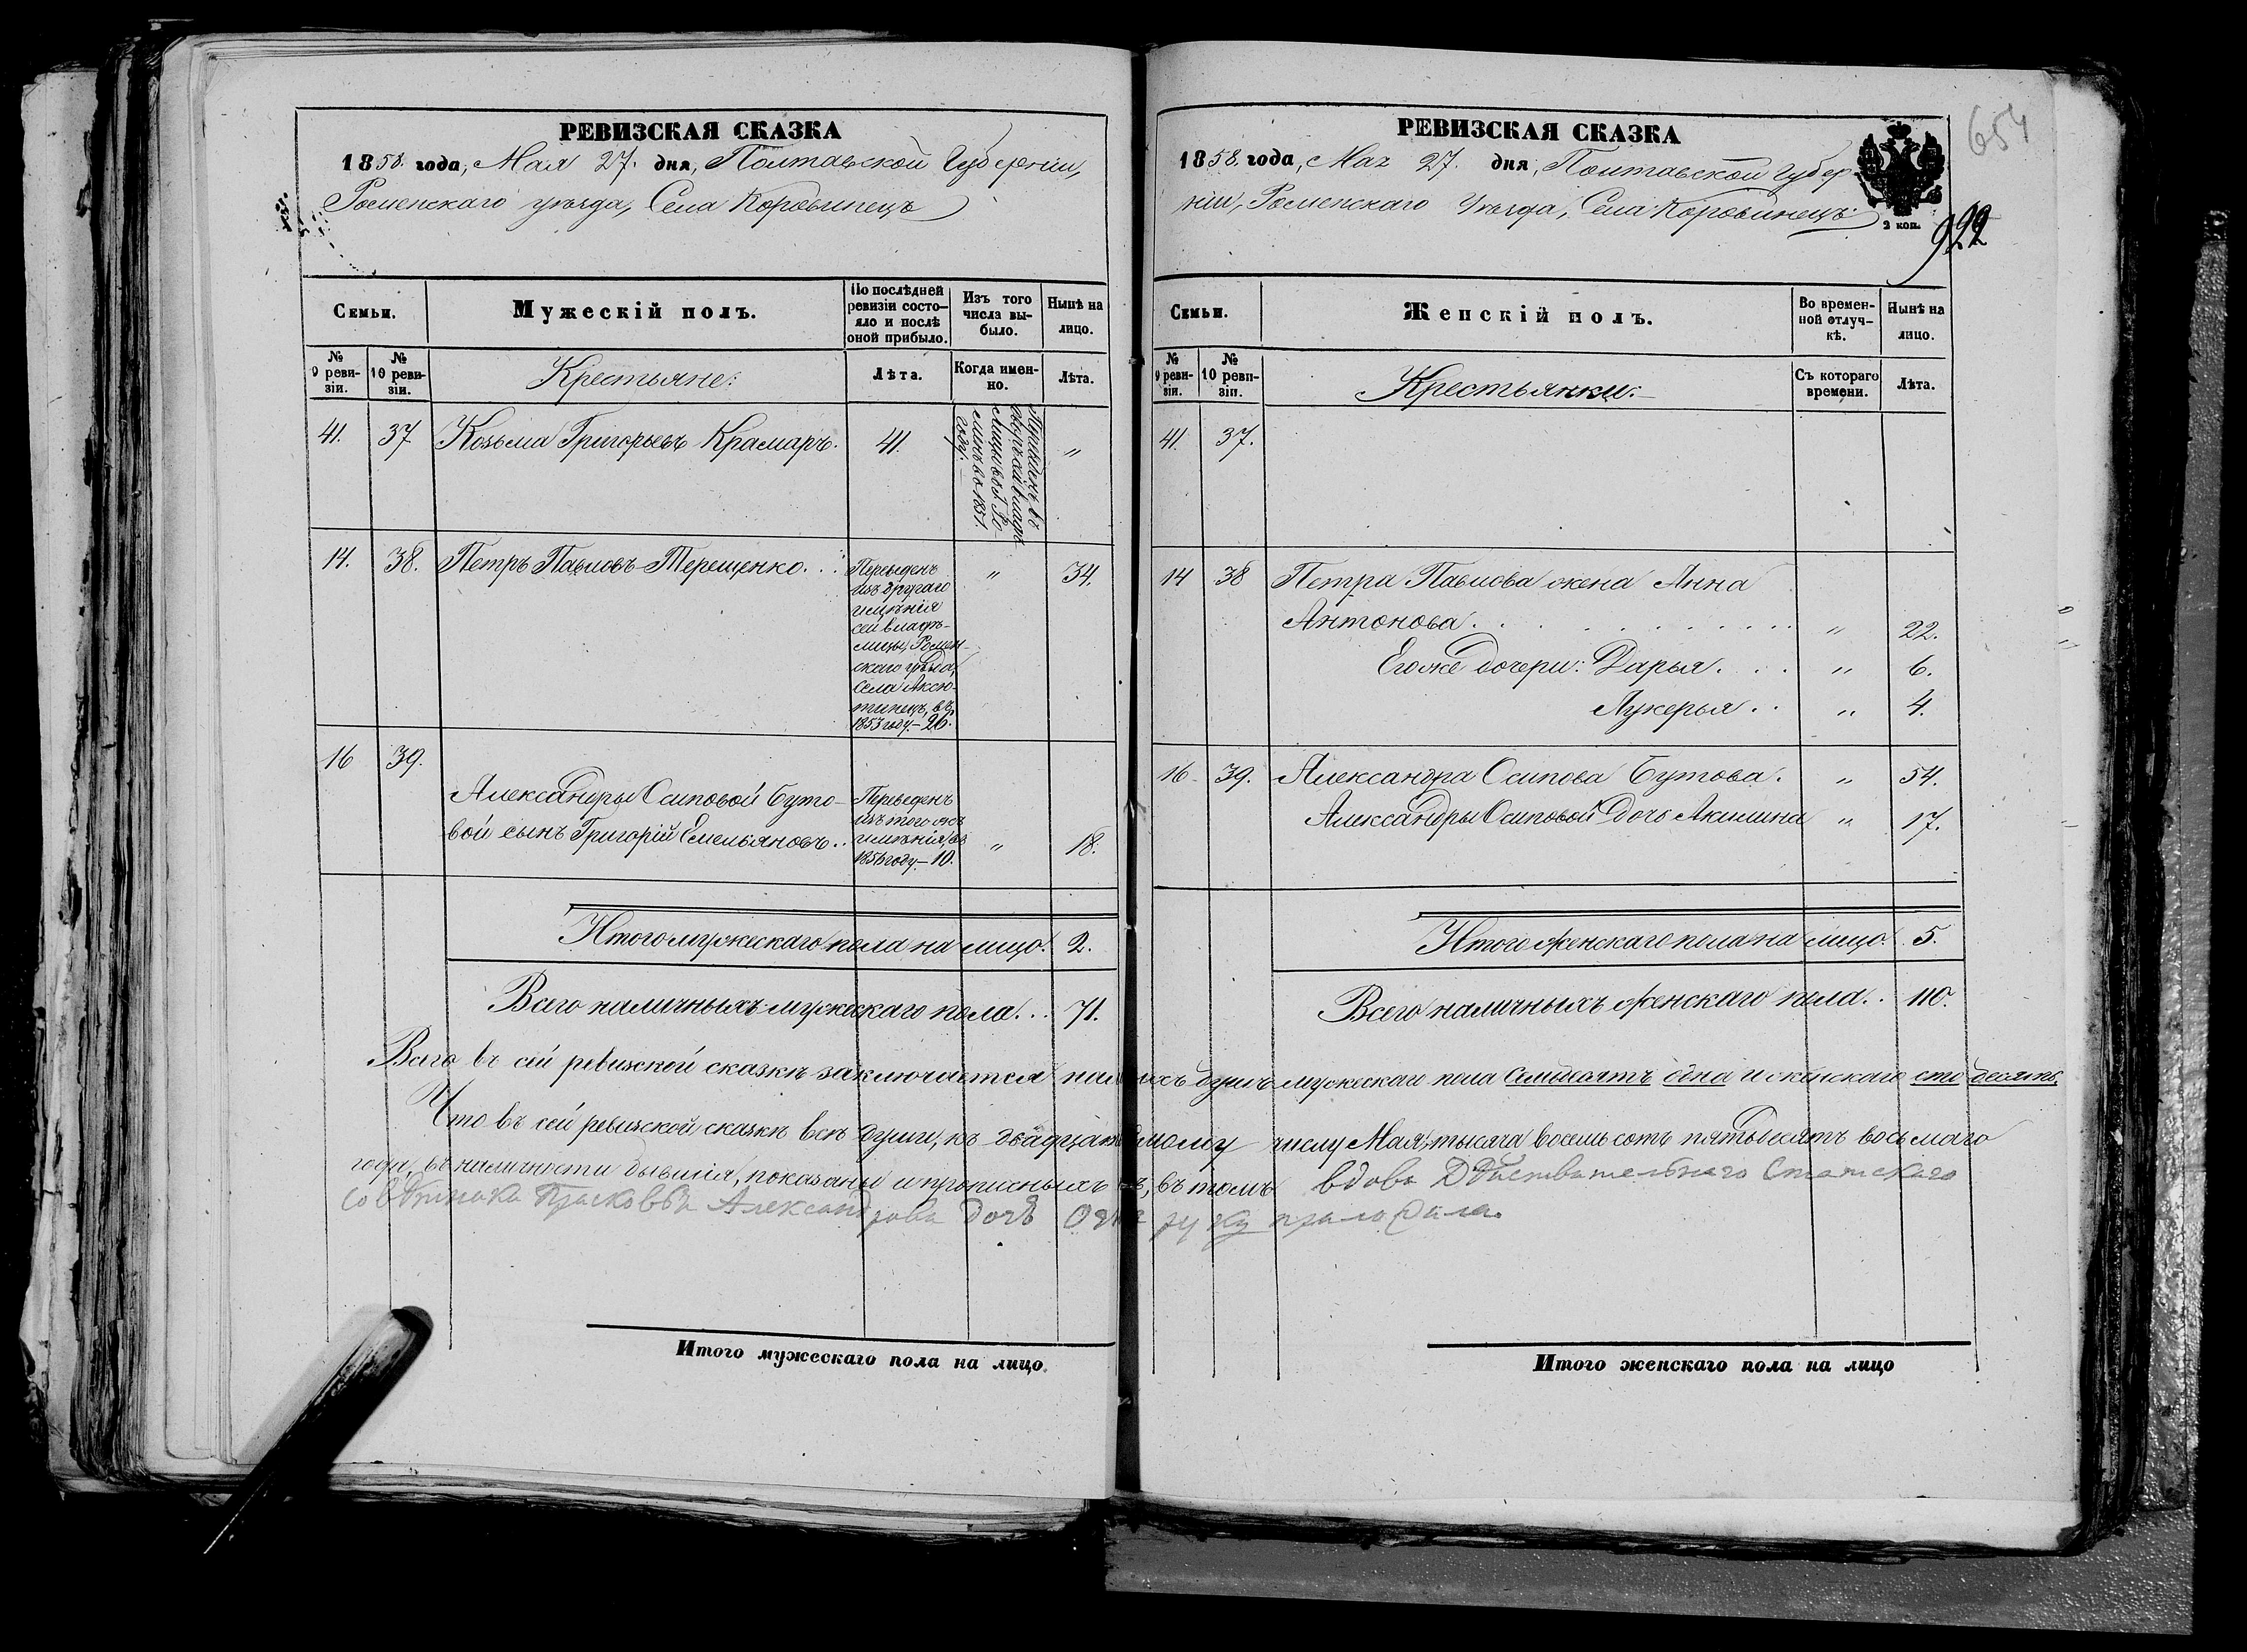 РЕВИЗСКАЯ СКАЗКА
1858. года, Мая 27. дня, Полтавской Губерніи,
Роменскаго уѣзда, Села Коровинецъ
Семьи.
Мужескій полъ.
По послѣдней ревизіи состояло и послѣ оной прибыло.
Изъ того числа выбыло.
Нынѣ на лицо.
№ 9 ревизіи.
№ 10 ревизіи.
Крестьяне:
Лѣта.
Когда именно.
Лѣта.
41. 37 Козьма Григорьевъ Крамаръ. 41. "
во 1851.
году.
14. 38. Петръ Павловъ Терещенко. . . Переведенъ " 34.
изъ другаго
имѣнія
сей владѣ-
лицы, Ромен-
скаго уѣзда,
Села Аксю-
тинецъ, въ
1853 году.- 26.
16 39.
Александры Осиповой Буто- Переведенъ
вой сынъ Григорій Емельяновъ. . изъ того же имѣнія, въ " 18.
1856 году.- 10.
Итого мужескаго пола на лицо. 2.
Всего наличныхъ мужескаго пола. . . 71.
Итого мужескаго пола на лицо.
РЕВИЗСКАЯ СКАЗКА
1858. года, Мая 27. дня, Полтавской Губер-
ніи, Роменскаго Уѣзда, Села Коровинецъ
2 коп.
654
922
Семьи.
Женскій полъ.
Во временной отлучкѣ.
Нынѣ на лицо.
№ 9 ревизіи.
№ 10 ревизіи.
Крестьянки:
Съ котораго времени.
Лѣта.
41. 37.
14 38 Петра Павлова жена Анна
Антонова. . . . " 22.
Его же дочери: Дарья. . . . " 6.
Лукерья. . " 4.
16 39. Александра Осипова Бутова. " 54.
Александры Осиповой дочь Акилина " 17.
Итого женскаго пола на лицо. 5.
Всего наличныхъ женскаго пола. . 110.
Всего въ сей ревизской сказкѣ заключается душъ мужескаго пола семдесятъ одна и женскаго сто десять.
Что въ сей ревизской сказкѣ всѣ души, къ двадцать числу Мая, тысяча восемь сотъ пятьдесятъ восьмаго
года, въ наличности бывшія, показаны и прописныхъ нѣтъ, въ томъ вдова Дѣйствительнаго Статскаго
Совѣтника Прасковья Александрова дочь руку приложила.
Итого женскаго пола на лицо